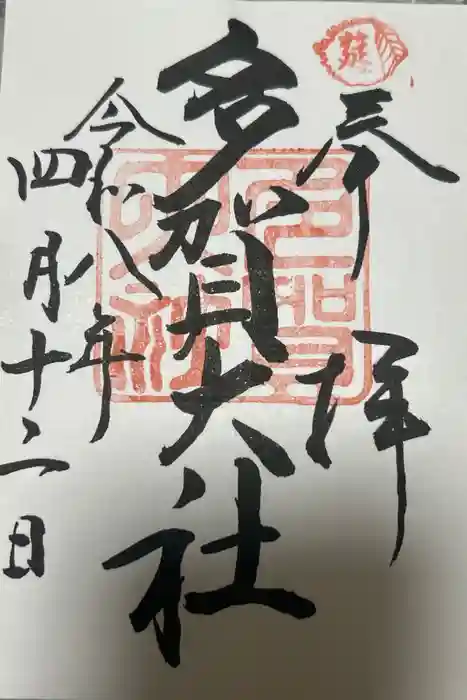 奉拝
多賀大社
令和八年
四月十二日